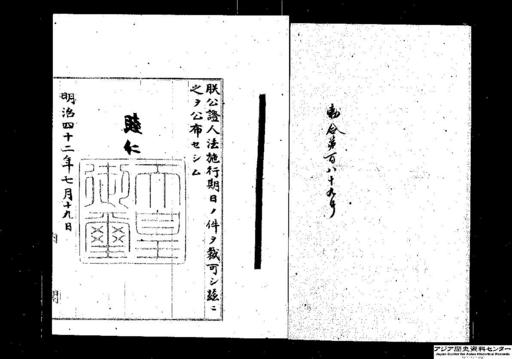 勅令第百八十九号
朕公證人法施行期日ノ件ヲ裁可シ茲ニ
之ヲ公布セシム
睦仁
天皇
御璽
明治四十二年七月十九日
内閣
アジア歴史資料センター
Japan Center for Asian Historical Records